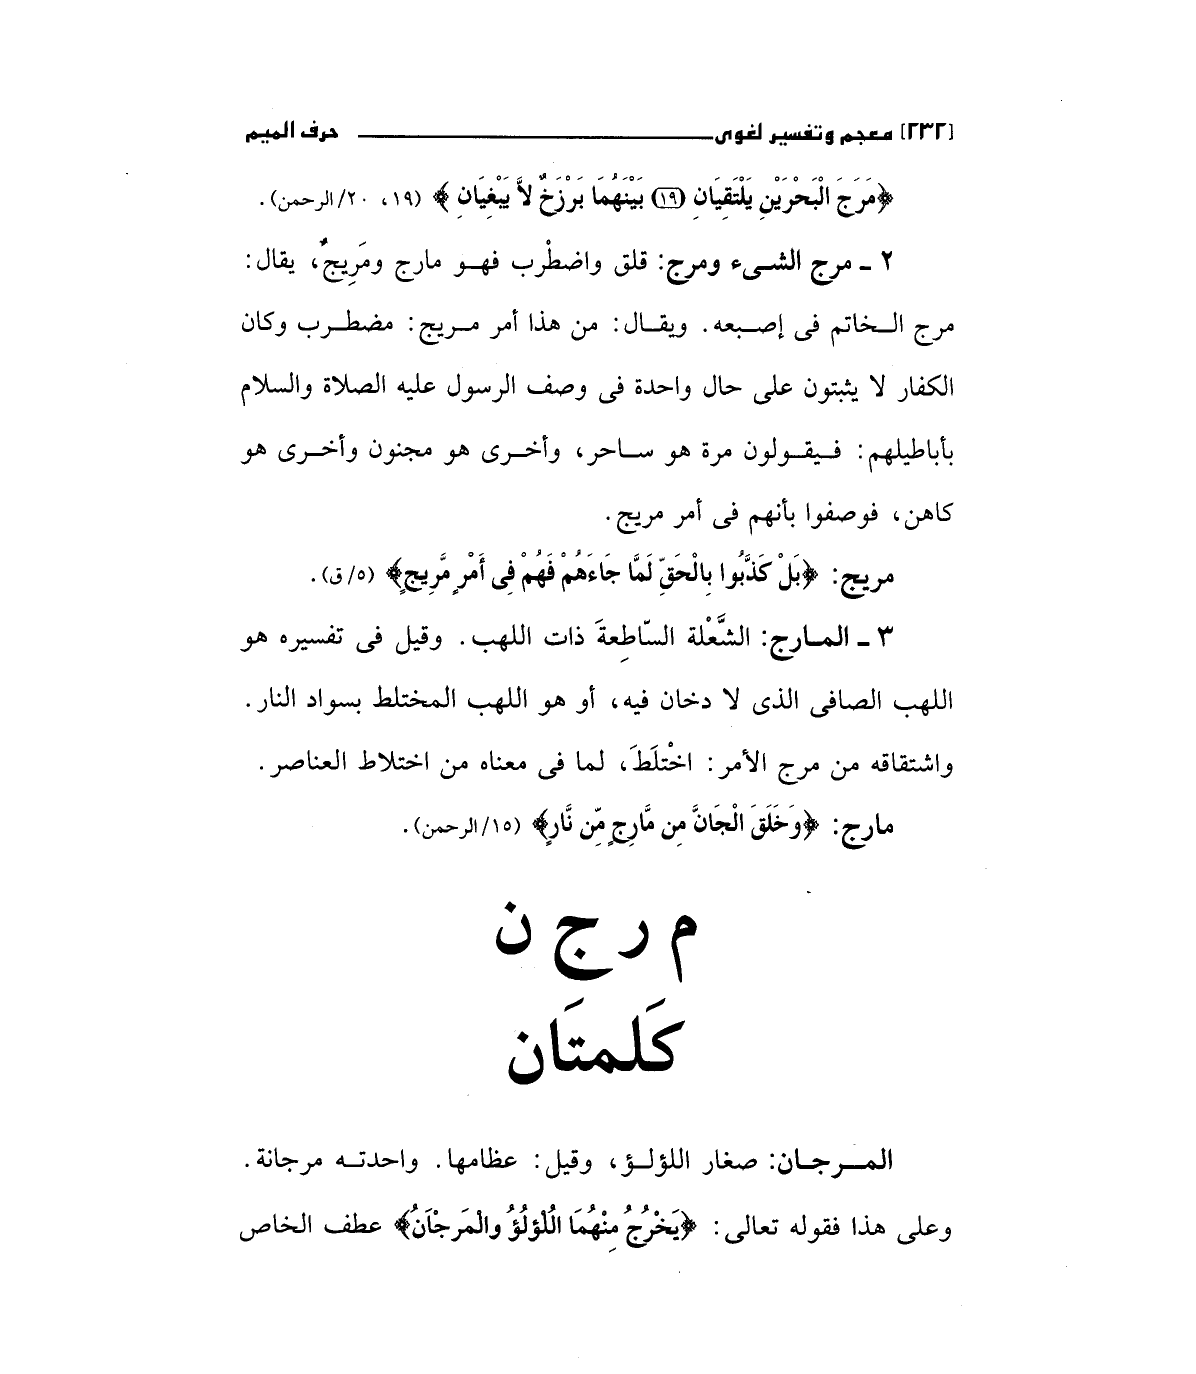 [٢٣٢] معجم وتفسير لغوى حرف الميم
﴿مَرَجَ الْبَحْرَيْنِ يَلْتَقِيَانِ (١٩) بَيْنَهُمَا بَرْزَخٌ لاَّ يَبْغِيَانِ﴾ (١٩، ٢٠/الرحمن).
٢ ـ مرج الشىء ومرج: قلق واضطْرب فهو مارج ومَرِيجٌ، يقال:
مرج الخاتم فى إصبعه. ويقال: من هذا أمر مريج: مضطرب وكان
الكفار لا يثبتون على حال واحدة فى وصف الرسول عليه الصلاة والسلام
بأباطيلهم: فيقولون مرة هو ساحر، وأخرى هو مجنون وأخرى هو
كاهن، فوصفوا بأنهم فى أمر مريج.
مريج: ﴿بَلْ كَذَّبُوا بِالْحَقِّ لَمَّا جَاءَهُمْ فَهُمْ فِى أَمْرٍ مَّرِيجٍ﴾ (٥/ق).
٣ ـ المارج: الشَّعْلة السّاطِعةَ ذات اللهب. وقيل فى تفسيره هو
اللهب الصافى الذى لا دخان فيه، أو هو اللهب المختلط بسواد النار.
واشتقاقه من مرج الأمر: اخْتلَطَ، لما فى معناه من اختلاط العناصر.
مارج: ﴿وَخَلَقَ الْجَانَّ مِن مَّارِجٍ مِّن نَّارٍ﴾ (١٥/الرحمن).
م ر ج ن
كَلمتَان
المرجان: صغار اللؤلؤ، وقيل: عظامها. واحدته مرجانة.
وعلى هذا فقوله تعالى: ﴿يَخْرُجُ مِنْهُمَا اللُّؤلُؤُ والْمَرجْاَنُ﴾ عطف الخاص